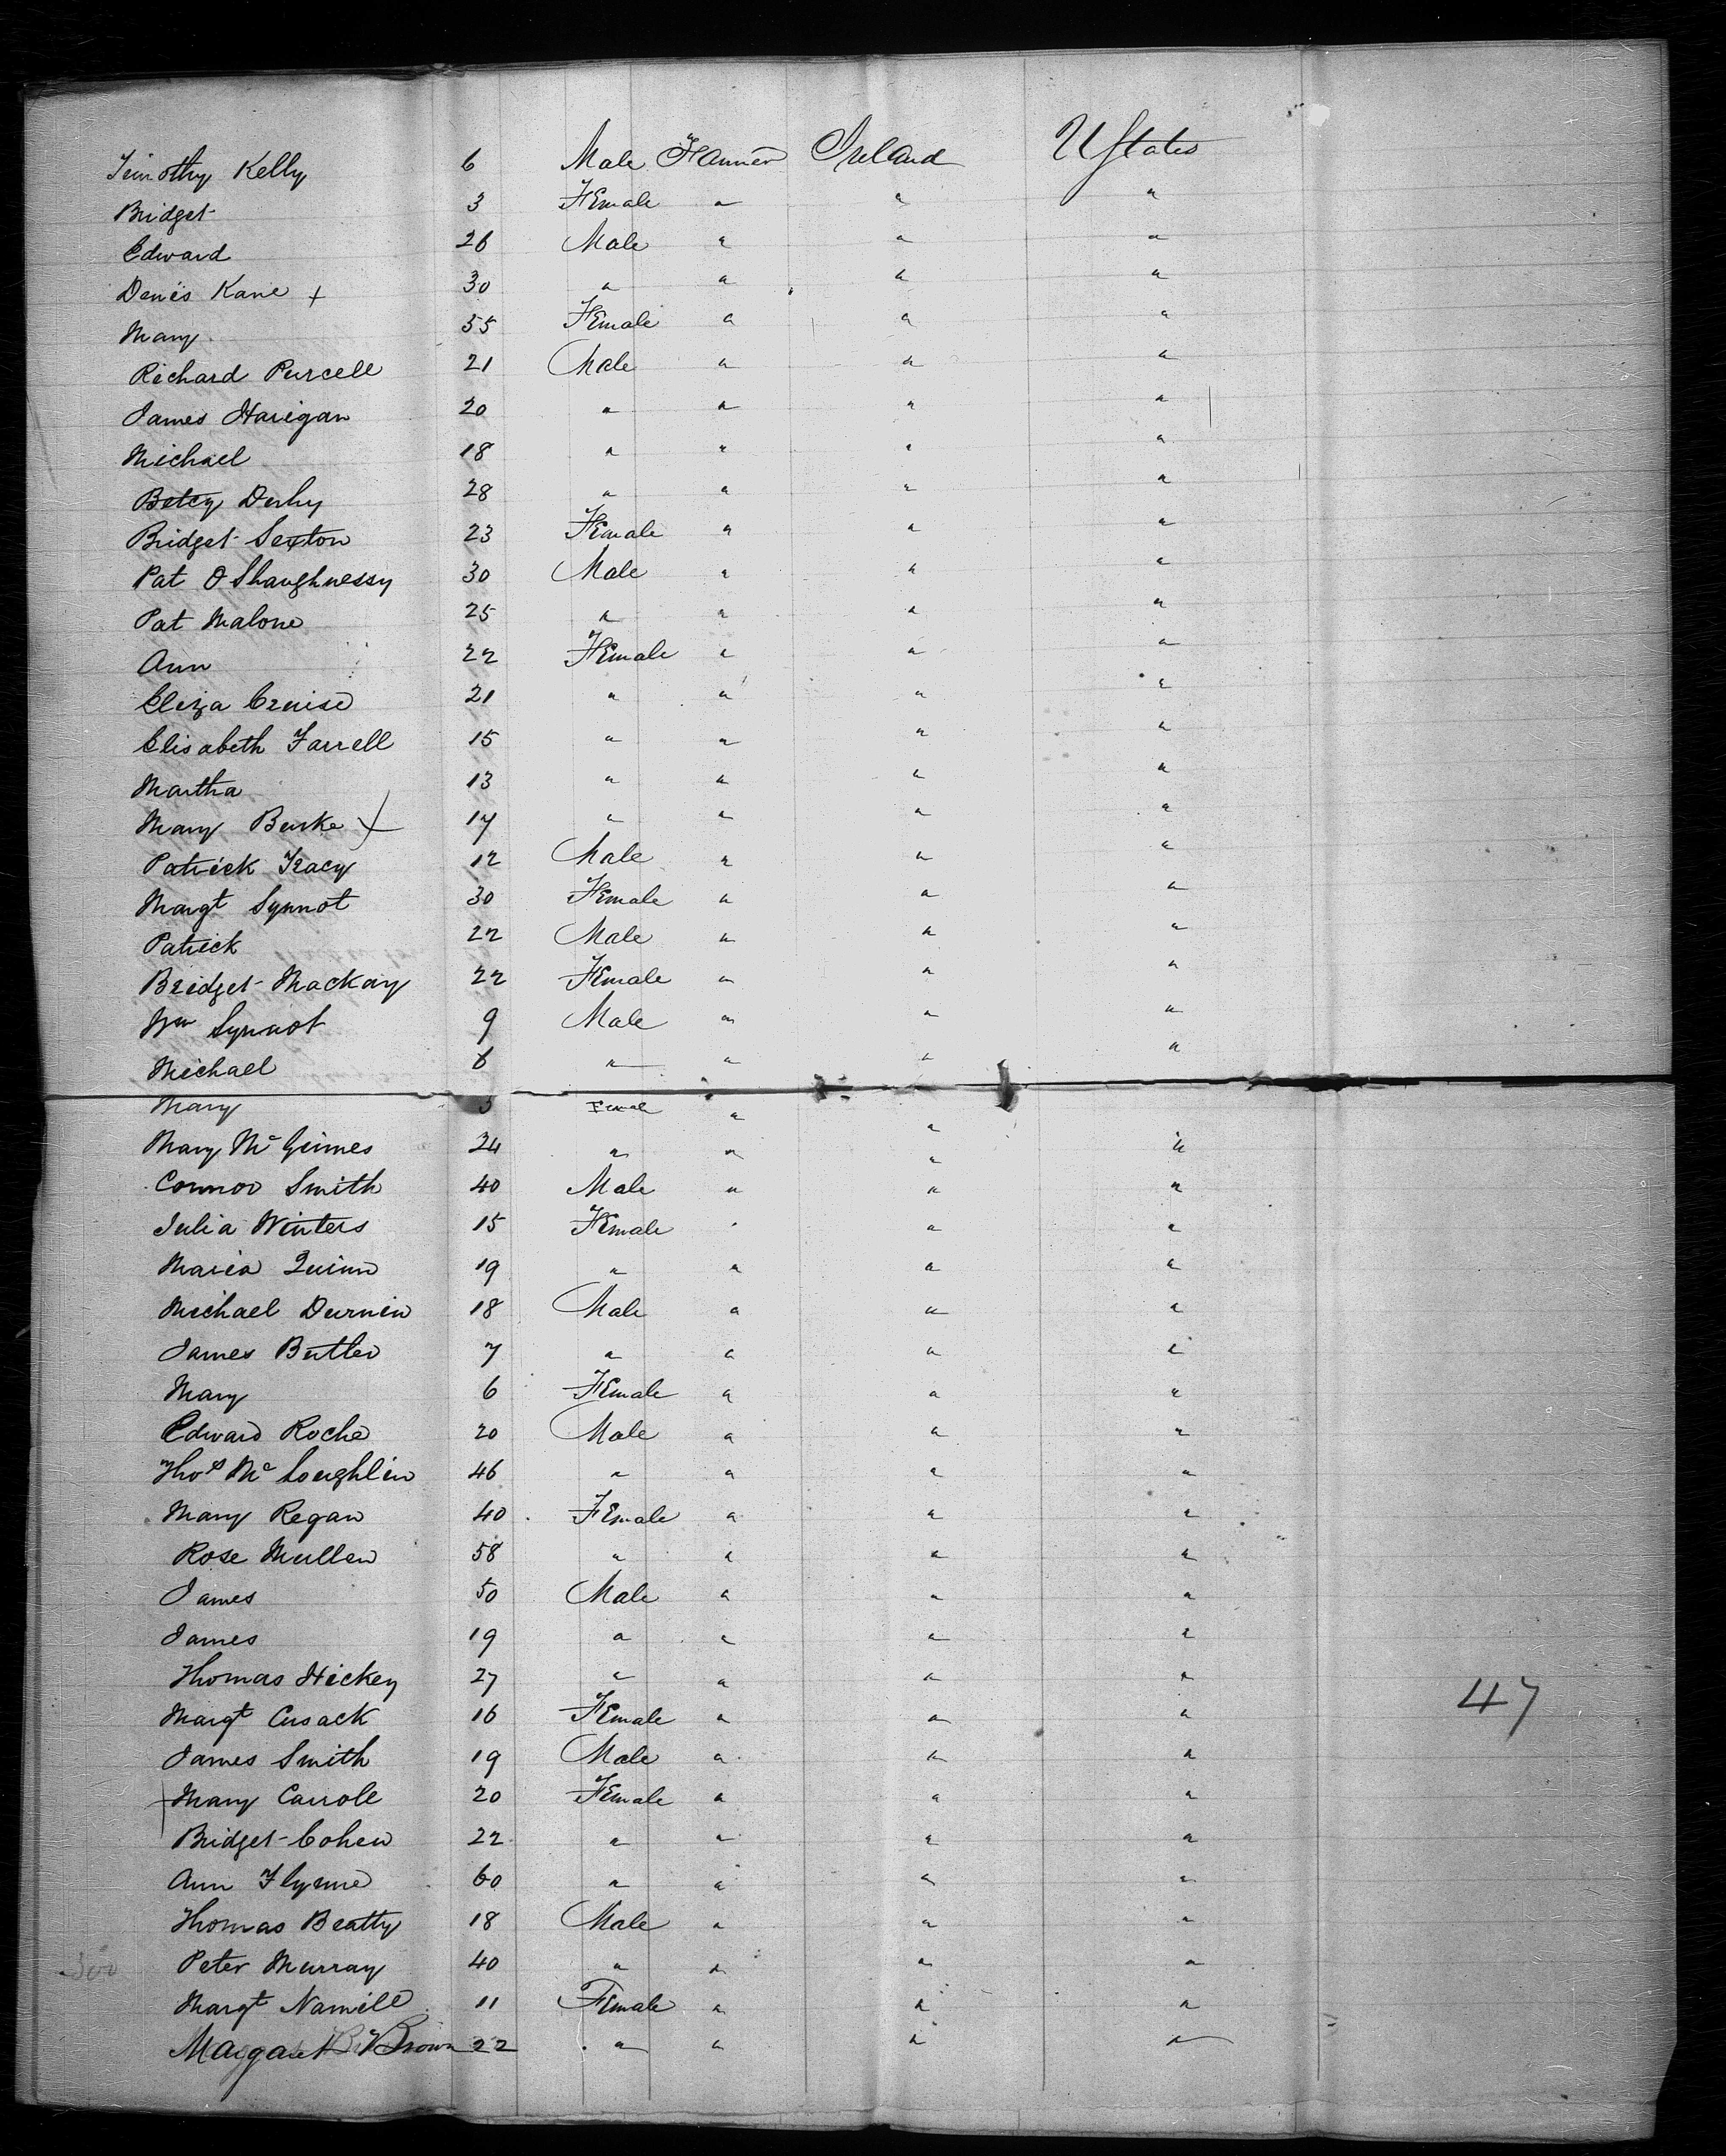 Timothy Kelly 6 Male Farmer Ireland U States
Bridget 3 Female " " "
Edward 26 Male " " "
Denis Kane + 30 " " " "
Mary 55 Female " " "
Richard Purcell 21 Male " " "
James Harigan 20 " " " "
Michael 18 " " " "
Betcy Derhy 28 " " " "
Bridget Sexton 23 Female " " "
Pat O Shaughnessy 30 Male " " "
Pat Malone 25 " " " "
Ann 22 Female " " "
Eliza Cruise 21 " " " "
Elisabeth Farrell 15 " " " "
Martha 13 " " " "
Mary Burke + 17 " " " "
Patrick Tracy 12 Male " " "
Margt Synnot 30 Female " " "
Patrick 22 Male " " "
Bridget Mackay 22 Female " " "
Wm Synnot 9 Male " " "
Michael 6 " " " "
Mary 3 Female " "
Mary Mc Guines 24 " " " "
Connor Smith 40 Male " " "
Julia Winters 15 Female " " "
Maria Quinn 19 " " " "
Michael Durnin 18 Male " " "
James Butler 7 " " " "
Mary 6 Female " " "
Edward Roche 20 Male " " "
Thos Mc Loughlin 46 " " " "
Mary Regan 40 Female " " "
Rose Mullen 58 " " " "
James 50 Male " " "
James 19 " " " "
Thomas Hickey 27 " " " "
Margt Cusack 16 Female " " "
47
James Smith 19 Male " " "
+ Mary Carroll 20 Female " " "
Bridget Cohen 22 " " " "
Ann Flynne 60 " " " "
Thomas Beatty 18 Male " " "
300 Peter Murray 40 " " " "
Margt Namill 11 Female " " "
Margaret Brown 22 " " " "